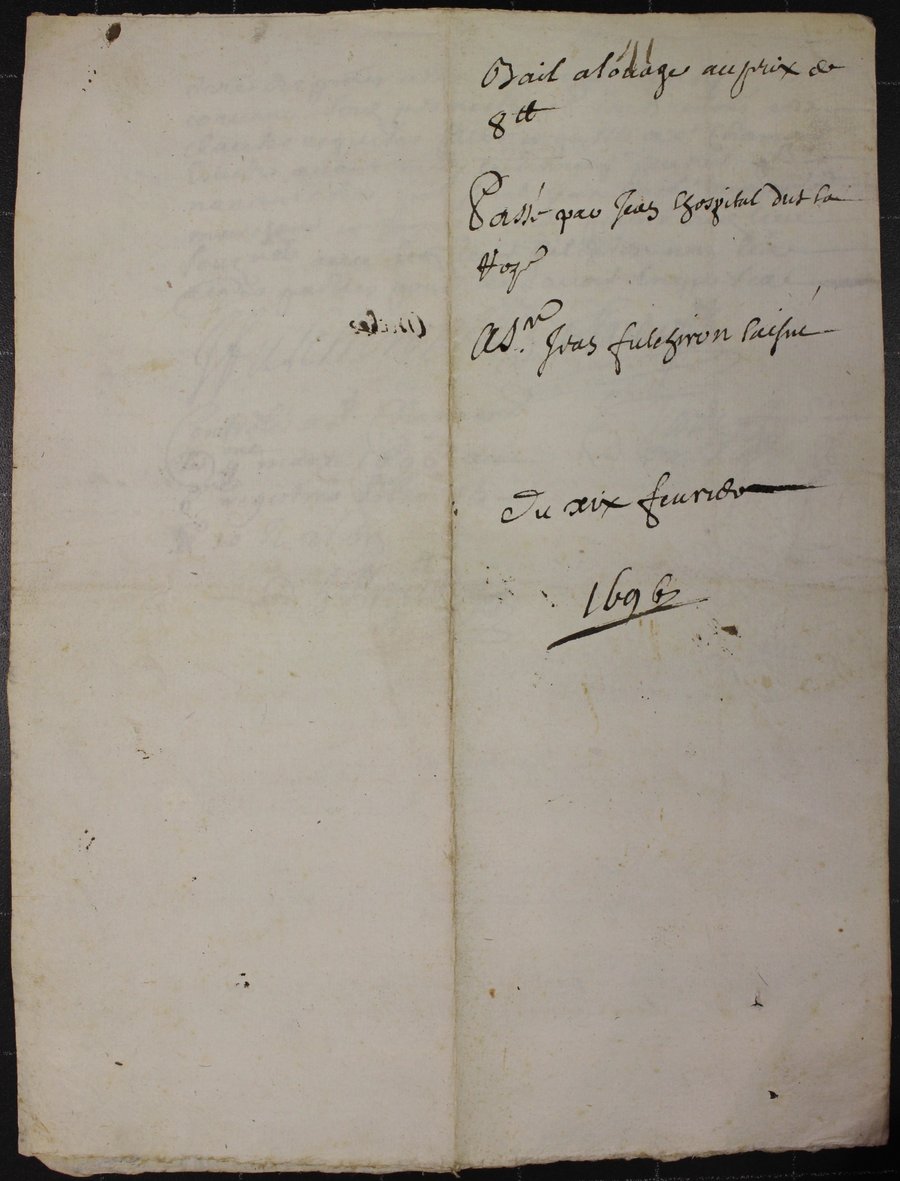 Bail a louage au prix de
8 tt
Passé par Jean lhospital dit la
A Sr. Jean fulchiron laisné
Du xix feurier
1696